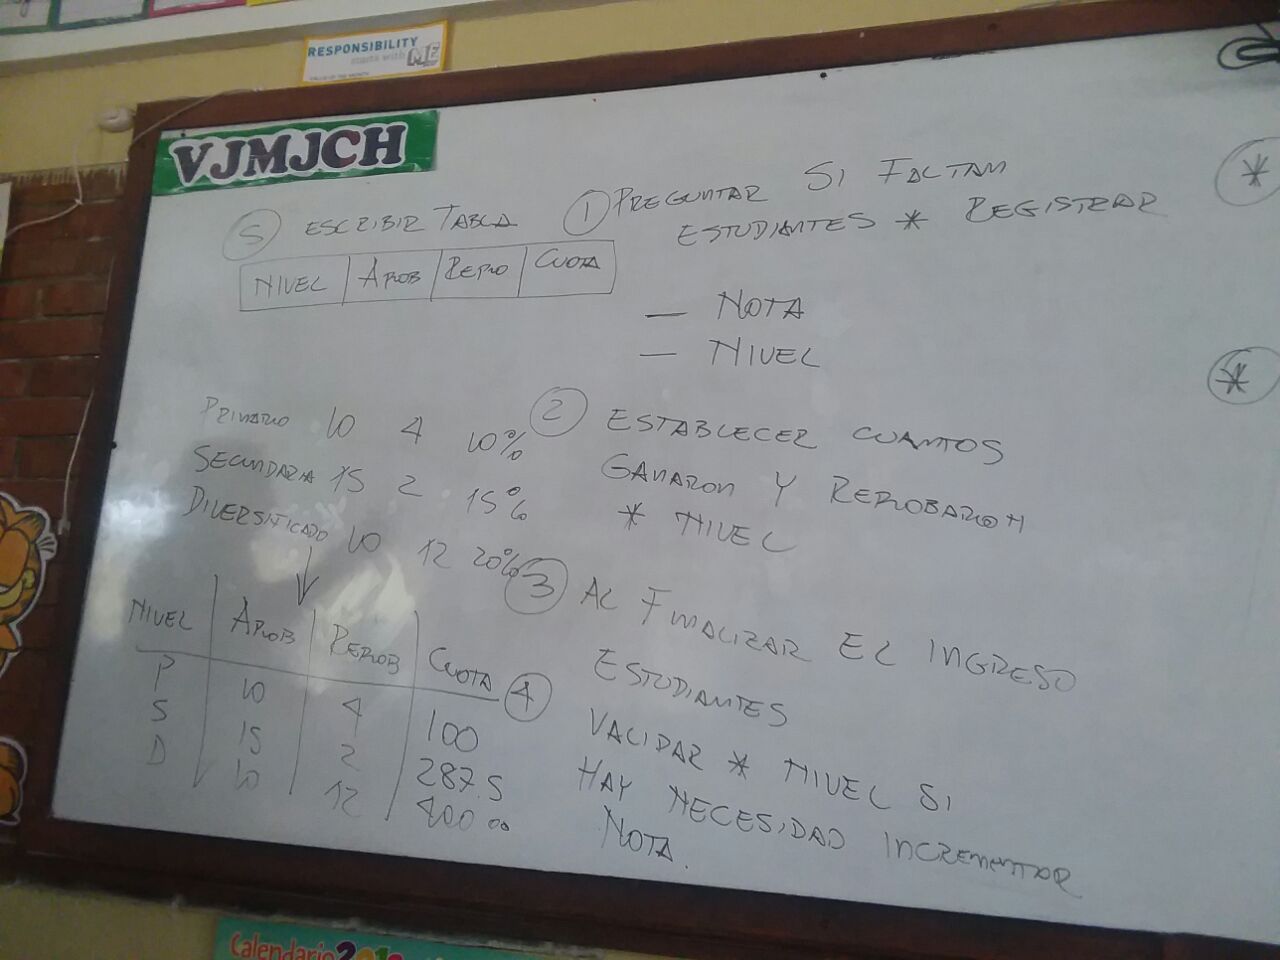 RESPONSIBILITY
starts with ME
VJMJCH
5 ESCRIBIR TABLA
NIVEL APROB REPRO CUOTA
1 PREGUNTAR SI FALTAN
ESTUDIANTES * REGISTRAR
— NOTA
— NIVEL
*
*
PRIMARIO 10 4 10%
SECUNDARIA 15 2 15%
DIVERSIFICADO 10 12 20%
2 ESTABLECER CUANTOS
GANARON Y REPROBARON
* NIVEL
3 AL FINALIZAR EL INGRESO
ESTUDIANTES
4 VALIDAR * NIVEL SI
HAY NECESIDAD INCREMENTAR
NOTA.
NIVEL APROB REPROB CUOTA
P 10 4 100
S 15 2 287.5
D 10 12 400 00
Calendario